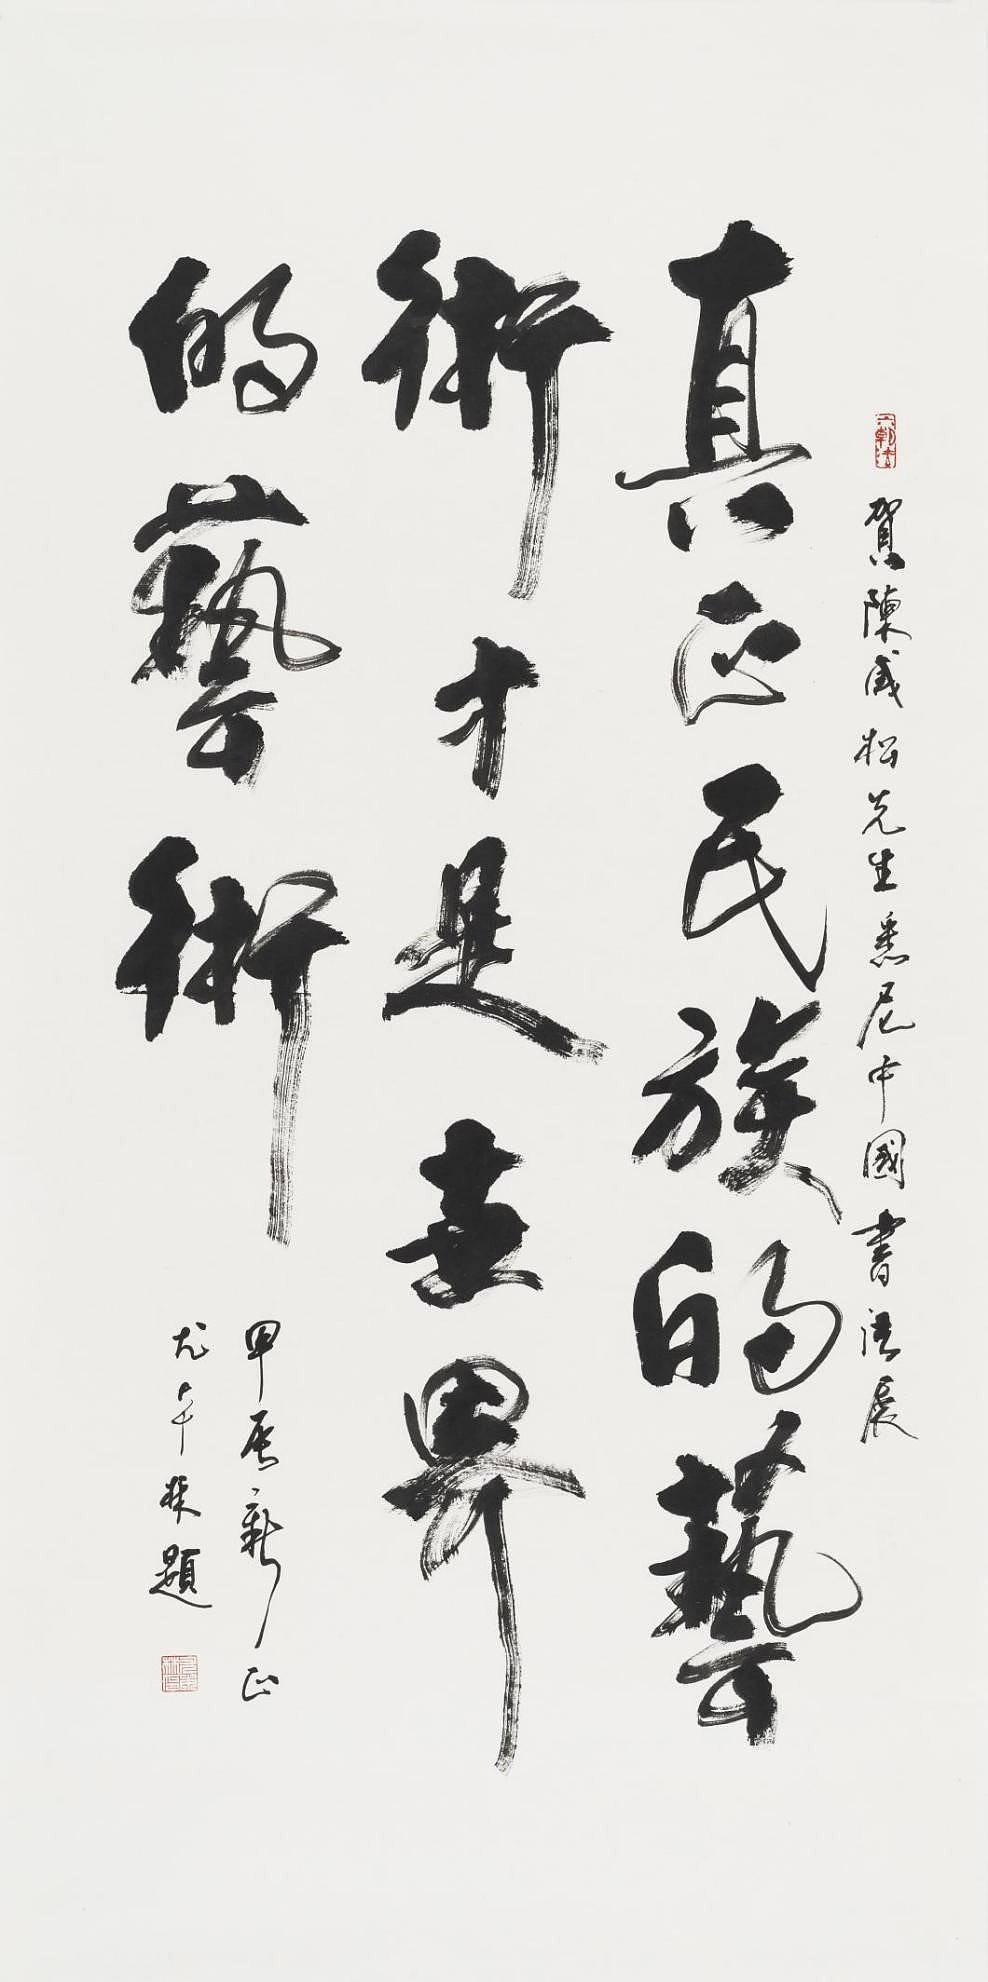 賀陳威松先生悉尼中國書法展
真正民族的藝
術才是世界
的藝術
甲辰新正
尤在林題